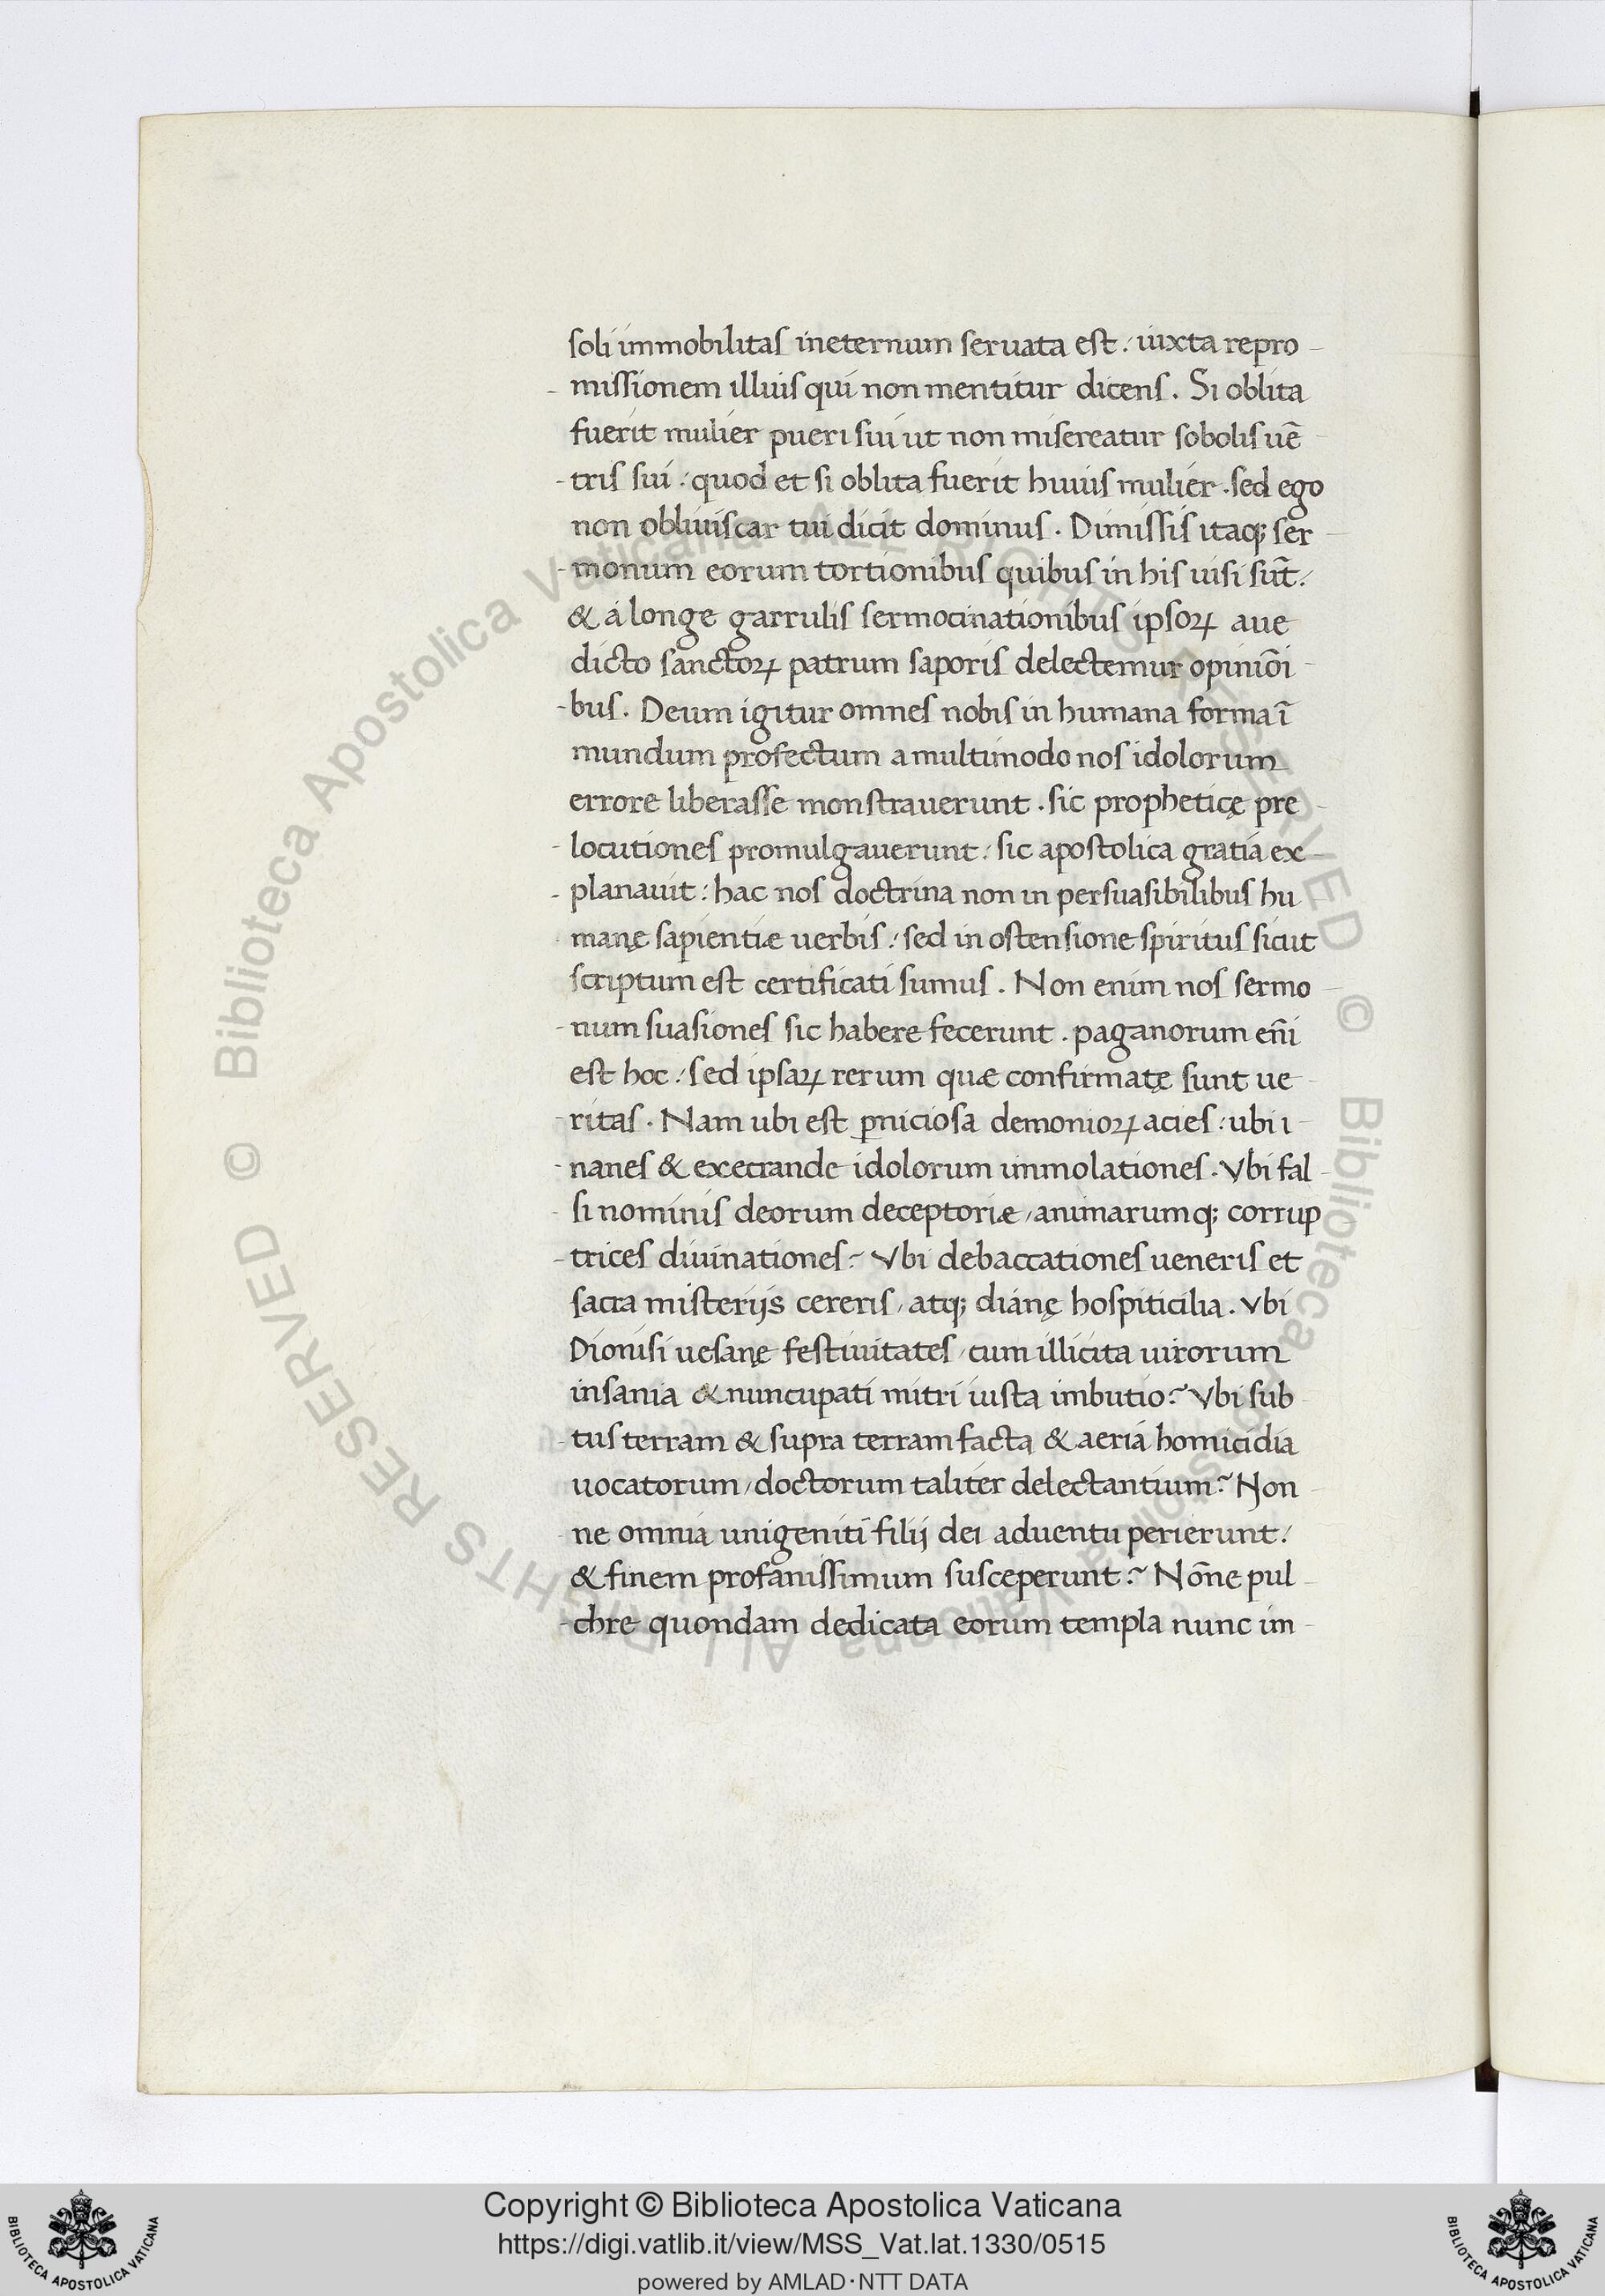 soli immobilitas ineternum seruata est: iuxta repro-
-missionem illius qui non mentitur dicens. Si oblita
fuerit mulier pueri sui ut non misereatur sobolis uē-
-tris sui: quod et si oblita fuerit huius mulier. sed ego
non obliuiscar tui dicit dominus. Dimissis itaq; ser-
-monum eorum tortionibus quibus in his uisi sūt:
& a longe garrulis sermocinationibus ipsoꝝ aue-
dicto sanctoꝝ patrum saporis delectemur opiniōi-
-bus. Deum igitur omnes nobis in humana forma ī
mundum profectum a multimodo nos idolorum
errore liberasse monstrauerunt. sic propheticę pre-
-locutiones promulgauerunt: sic apostolica gratia ex-
-planauit: hac nos doctrina non in persuasibilibus hu
manę sapientiæ uerbis: sed in ostensione spiritus sicut
scriptum est certificati sumus. Non enim nos sermo-
-num suasiones sic habere fecerunt. paganorum eñi
est hoc: sed ipsaꝝ rerum quæ confirmatę sunt ue-
-ritas. Nam ubi est ꝑniciosa demonioꝝ acies: ubi i-
-nanes & execrande idolorum immolationes. Vbi fal-
-si nominis deorum deceptoriæ, animarumq; corrup
-trices diuinationes? Vbi debaccationes ueneris et
sacra misterijs cereris, atq; dianę hospiticilia. Vbi
Dionisi uesanę festiuitates, cum illicita uirorum
insania & nuncupati mitri iusta imbutio? Vbi sub-
-tus terram & supra terram facta & aeria homicidia
uocatorum, doctorum taliter delectantium? Non-
-ne omnia unigeniti filij dei aduentu perierunt:
& finem profanissimum susceperunt? Nōne pul-
-chre quondam dedicata eorum templa nunc im-
© Biblioteca Apostolica Vaticana ALL RIGHTS RESERVED © Biblioteca Apostolica Vaticana ALL RIGHTS RESERVED
Copyright © Biblioteca Apostolica Vaticana
https://digi.vatlib.it/view/MSS_Vat.lat.1330/0515
powered by AMLAD·NTT DATA
BIBLIOTECA APOSTOLICA VATICANA
BIBLIOTECA APOSTOLICA VATICANA